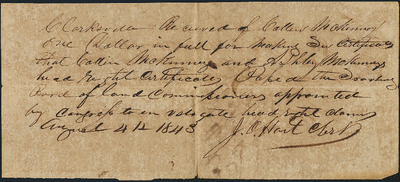 Clarksville Received of Collin McKinney
one Dollar in full for Making Out Certificate
that Collin McKinney and Ashley McKinneys
head Right Certificates Passed the Traveling
Board of land Commissioners appointed
by Congress to investigate head right claims
August 4th 1843 J. C. Hart Clerk